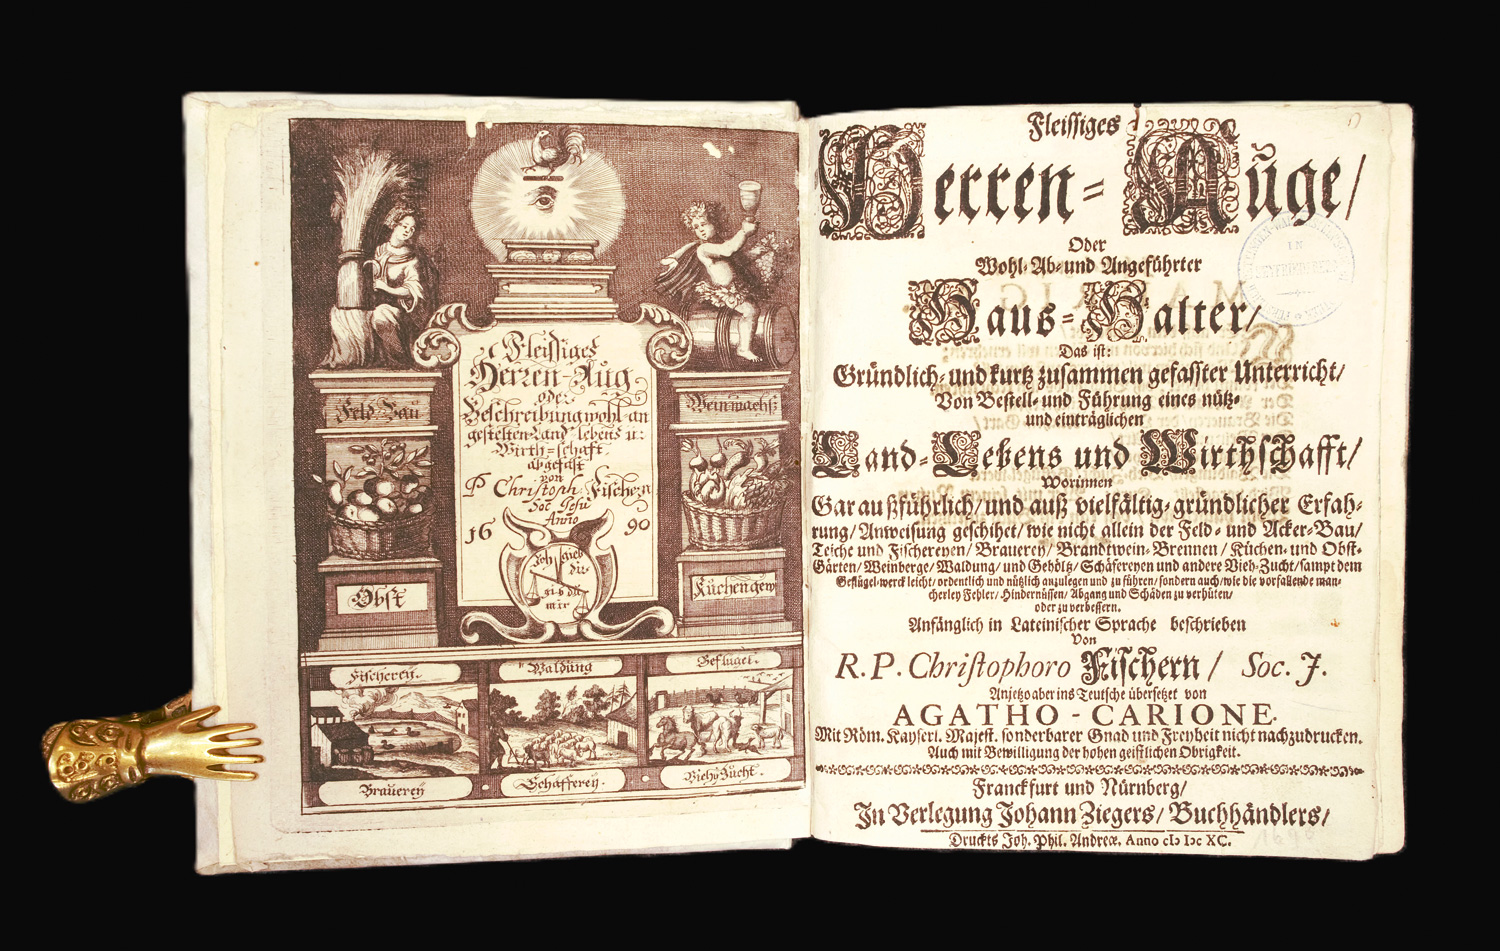 Feld Bau
Weinwachß
Fleissiges
Herren-Aug
oder
Beschreibung wohl-an
gestelten Land lebens u:
Wirth-schaft
abgefast
von
P Christoph Fischern
Soc Jesu
Anno
16 90
gib du
mir
Obst
Küchengew
Fischerey.
Waldung
Geflügel.
Brauerey
Schäfferey.
Viehzucht.
Fleissiges
Herren-Auge/
Oder
Wohl-Ab- und Angeführter
Haus-Halter/
Das ist:
Gründlich- und kurtz zusammen gefasster Unterricht/
Von Bestell- und Führung eines nütz-
und einträglichen
Land-Lebens und Wirthschafft/
Worinnen
Gar außführlich/ und auß vielfältig-gründlicher Erfah-
rung/ Anweisung geschihet/ wie nicht allein der Feld- und Acker-Bau/
Teiche und Fischereyen/ Brauerey/ Brandtwein-Brennen/ Küchen- und Obst-
Gärten/ Weinberge/ Waldung/ und Gehöltz/ Schäfereyen und andere Vieh-Zucht/ sampt dem
Geflügel-werck leicht/ ordentlich und nützlich anzulegen und zu führen/ sondern auch/ wie die vorfallende man-
cherley Fehler/ Hindernüssen/ Abgang und Schäden zu verhüten/
oder zu verbessern.
Anfänglich in Lateinischer Sprache beschrieben
Von
R. P. Christophoro Fischern/ Soc. J.
Anjetzo aber ins Teutsche übersetzet von
AGATHO-CARIONE.
Mit Röm. Kayserl. Majest. sonderbarer Gnad und Freyheit nicht nachzudrucken.
Auch mit Bewilligung der hohen geistlichen Obrigkeit.
Franckfurt und Nürnberg/
In Verlegung Johann Ziegers/ Buchhändlers/
Druckts Joh. Phil. Andreæ, Anno cIɔ Iɔc XC.